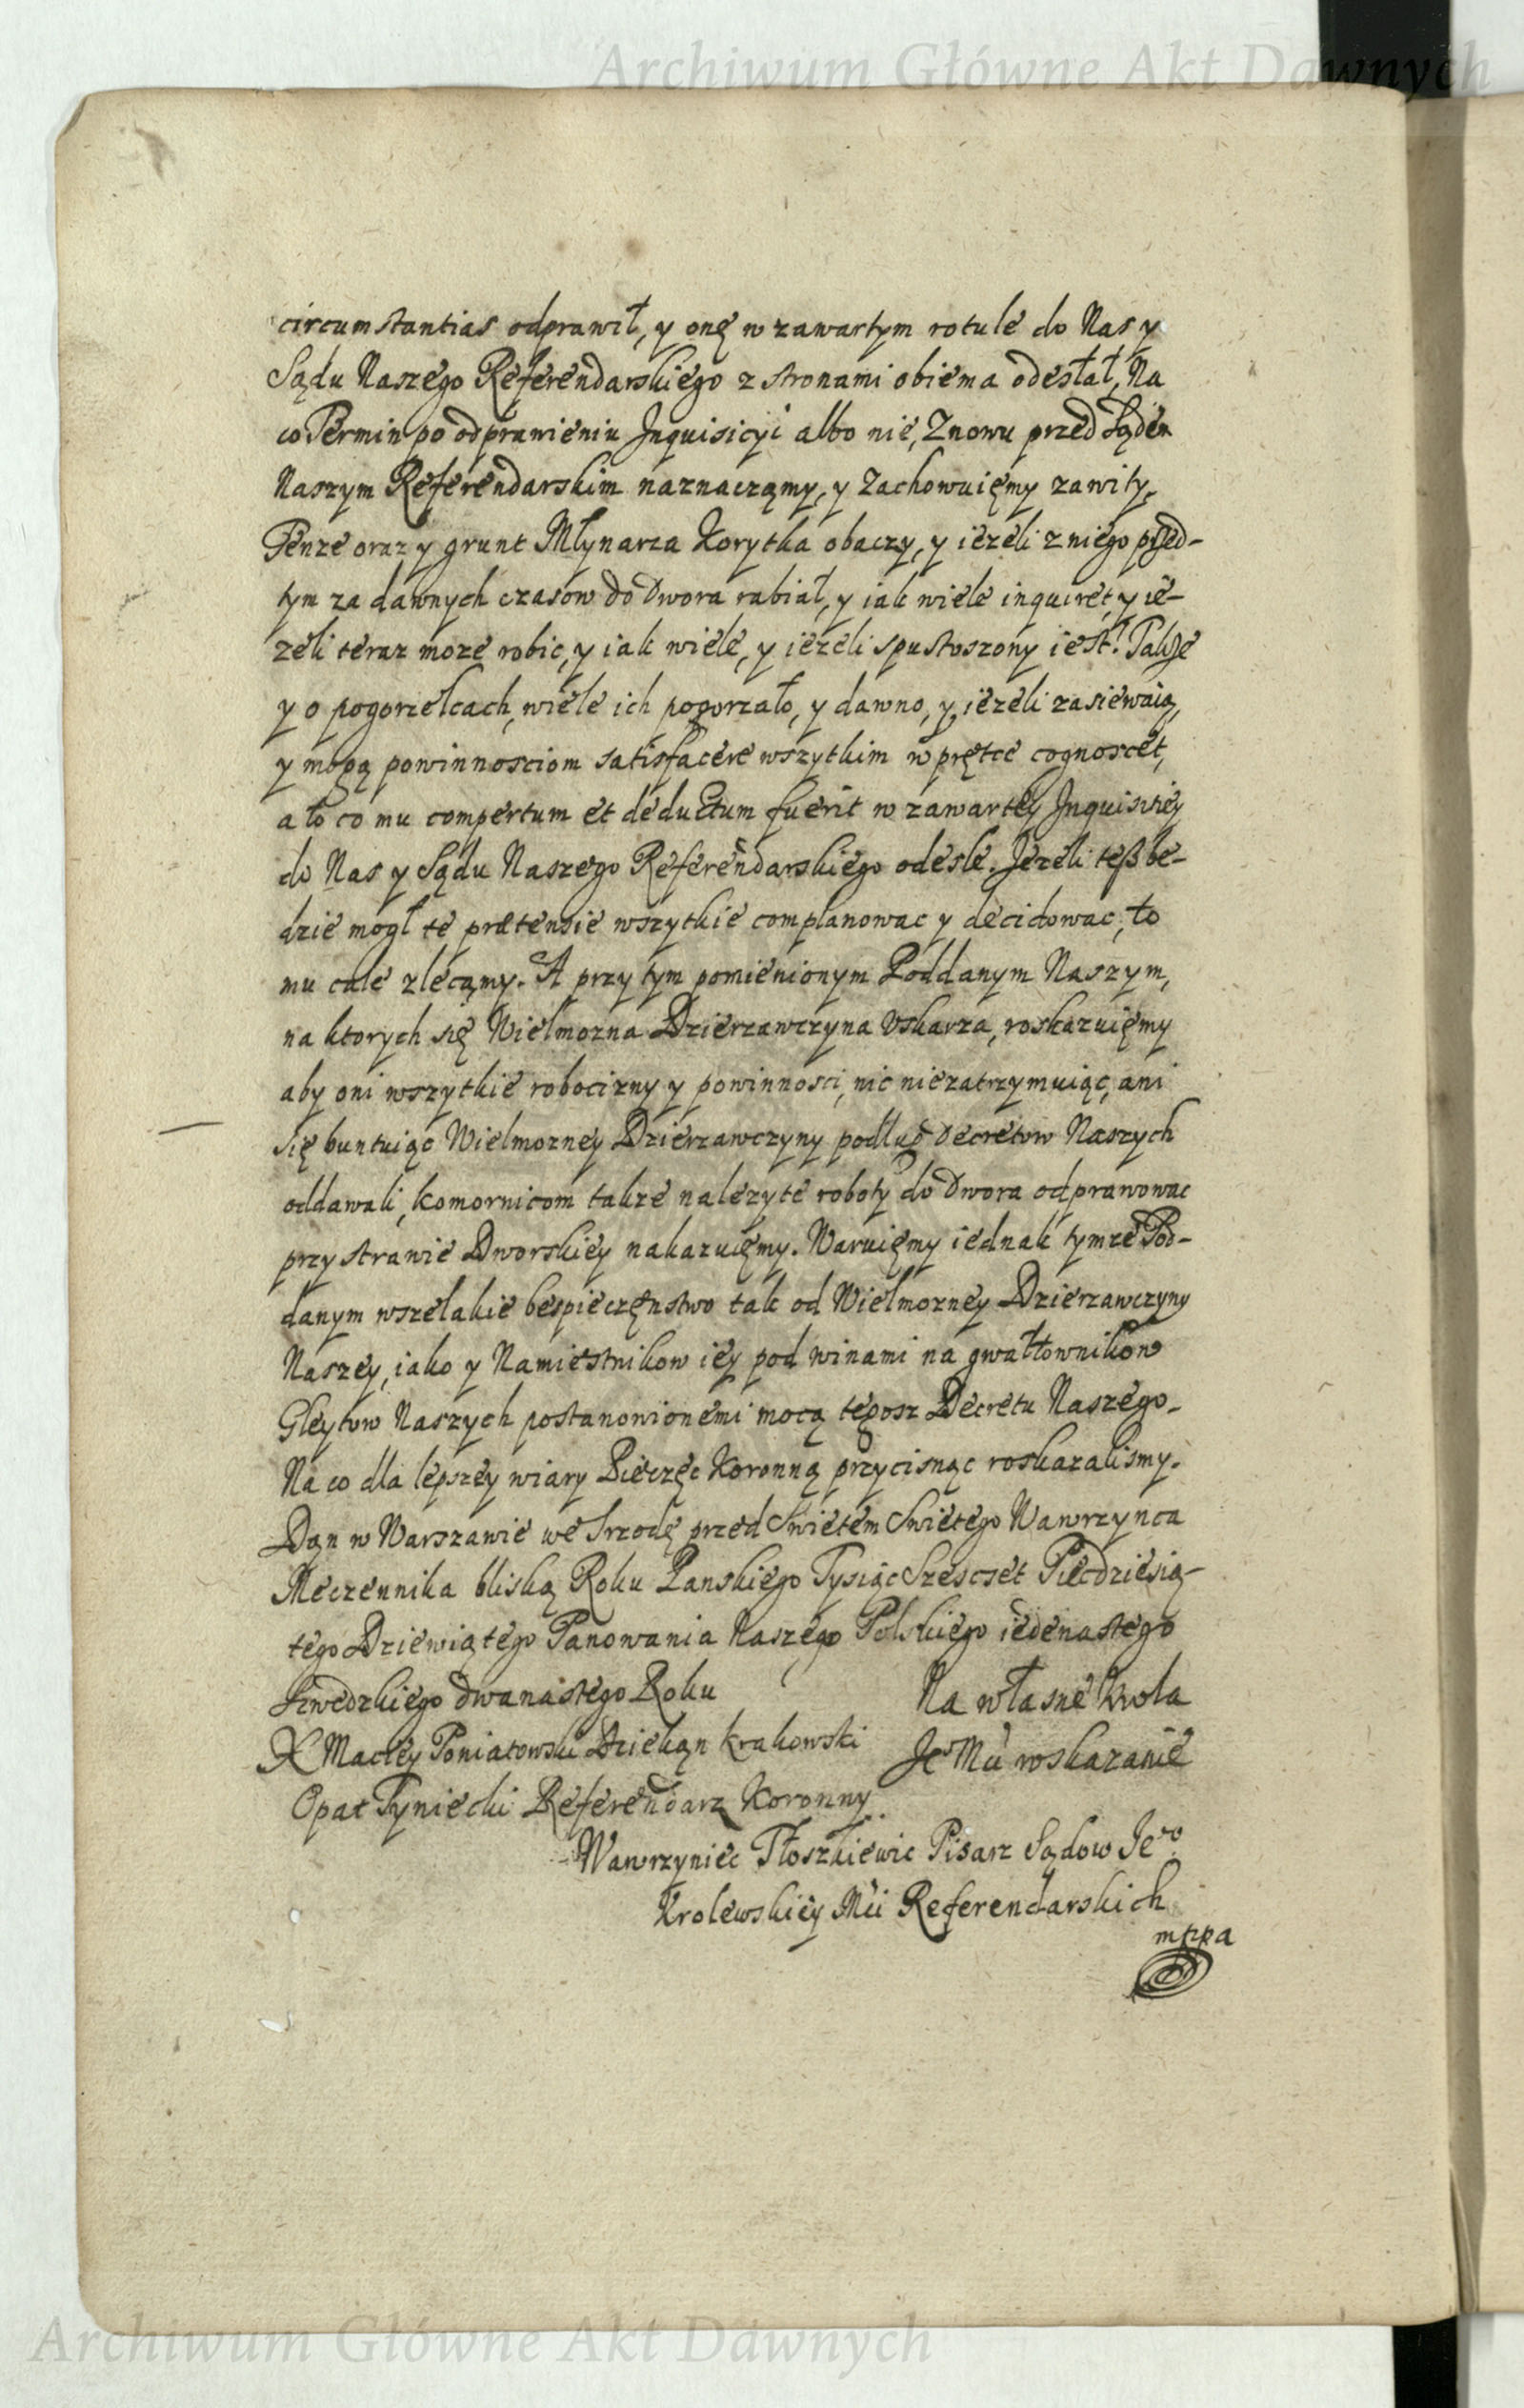 Archiwum Główne Akt Dawnych
circumstantias odprawił, y onę w zawartym rotule do Nas y
Sądu Naszego Referendarskiego z stronami obiema odesłał, Na
co Termin po odprawieniu Inquisicyi albo nie, Znowu przed Sądem
Naszym Referendarskim naznaczamy, y Zachowuięmy zawity,
Tenze oraz y grunt Młynarza Korytka obaczy, y iezeli z niego przed-
tym za dawnych czasow do Dwora rabiał, y iak wiele inquiret, y ie-
zeli teraz moze robic, y iak wiele, y iezeli spustoszony iest! Takze
y o pogorzelcach, wiele ich pogorzało, y dawno, y iezeli zasiewaią,
y mogą powinnosciom satisfacere wszytkim w prętce cognoscet,
a to co mu compertum et deductum fuerit w zawartey Inquisitiey
do Nas y Sądu Naszego Referendarskiego odesle. Jezeli teß be-
dzie mogł te prætensie wszytkie complanowac y decidowac, to
mu cale zlecamy. A przy tym pomienionym Poddanym Naszym,
na ktorych się Wielmozna Dzierzawczyna Uskarza, roskazuięmy
aby oni wszytkie robocizny y powinnosci, nic niezatrzymuiąc, ani
się buntuiąc Wielmozney Dzierzawczyny podług Decretow Naszych
oddawali, komornicom takze nalezyte roboty do Dwora odprawowac
przy strawie Dworskiey nakazuięmy. Waruięmy iednak tymze Pod-
danym wszelakie bespieczęnstwo tak od Wielmozney Dzierzawczyny
Naszey, iako y Namiestnikow iey pod winami na gwałtownikow
Gleytow Naszych postanowionemi mocą tegosz Decretu Naszego.
Na co dla lepszey wiary Pieczęc Koronną przycisnąc roskazalismy.
Dan w Warszawie we Srzodę przed Swietem Swietego Wawrzynca
Meczennika bliską Roku Panskiego Tysiąc Szescset Piecdziesią-
tego Dziewiątego Panowania Naszego Polskiego iedenastego
Szwedzkiego dwanastego Roku
Na własne Krola
X Maciey Poniatowski Dziekąn krakowski
Je° Mci roskazanie
Opat Tyniecki Referendarz Koronny
Wawrzyniec Tłoszkiewic Pisarz Sądow Je°
Krolewskiey Mci Referendarskich
mppa
Archiwum Główne Akt Dawnych